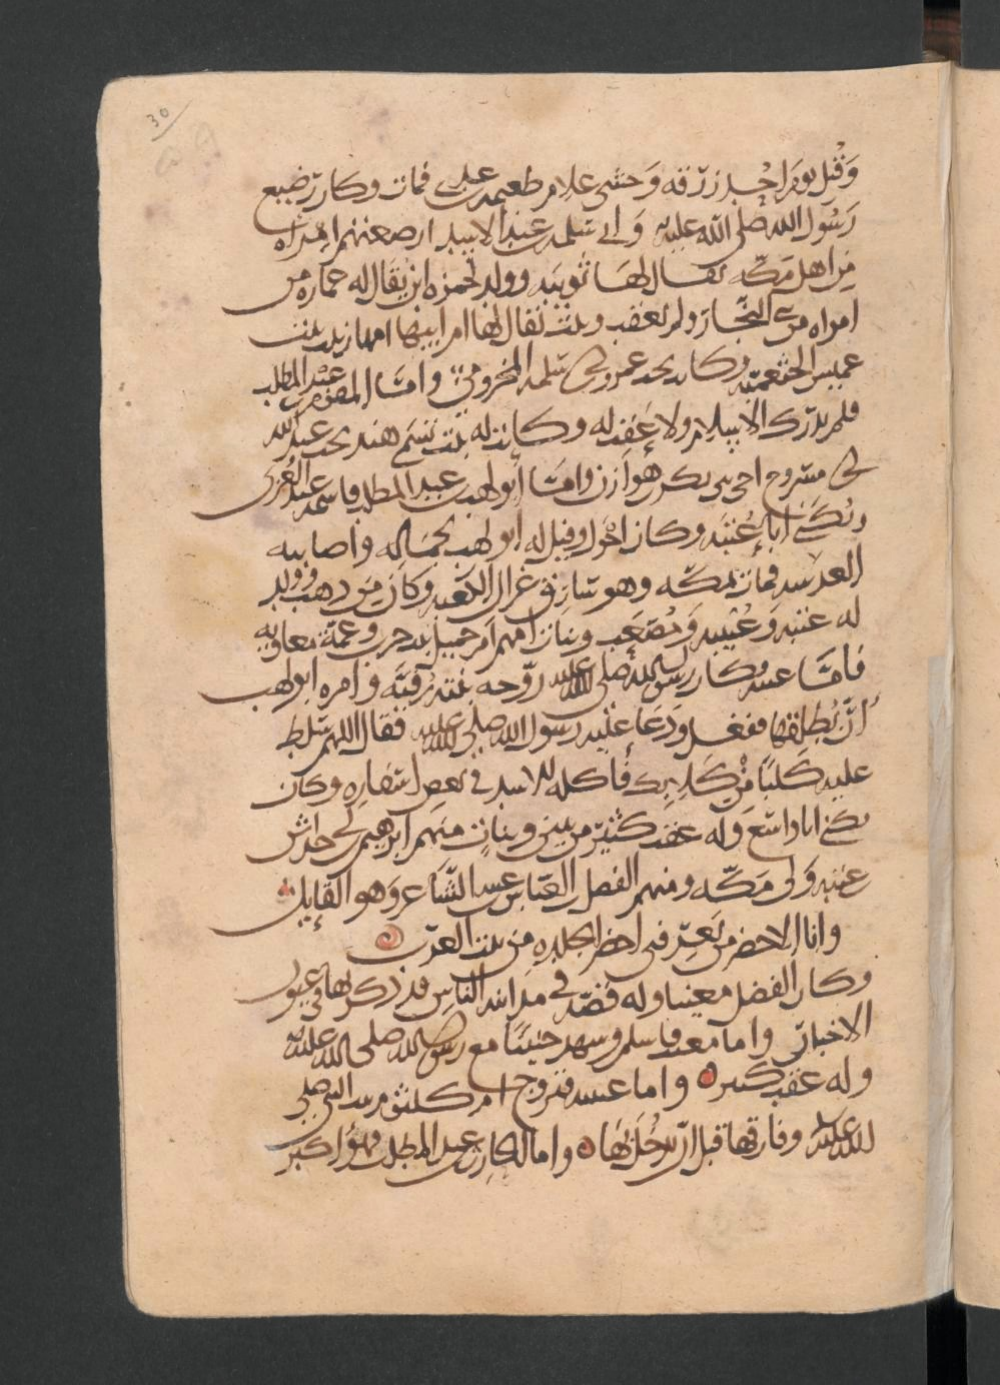 30
وقتل يوم احد زرقه وحشى غلام طعيمه بن عدى فمات وكان رضيع
رسول الله صلى الله عليه وابى سلمه بن عبد الاسد ارضعتهم امراه
من اهل مكه يقال لها ثويبه وولد لحمزه ابن يقال له عماره من
امراه من بنى النجار ولم يعقب وبنت يقال لها ام ابيها امها زينب بنت
عميس الخثعميه وكانت تحت عمر بن ابى سلمه المخزومى واما المقوم بن عبد المطلب
فلم يدرك الاسلام ولا عقب له وكانت له بنت تسمى هند تحت عبد الله
بن ابى مسروح اخى بنى سعد بن بكر بن هوازن واما ابو لهب بن عبد المطلب فاسمه عبد العزى
ويكنى ابا عتبه وكان احول وقيل له ابو لهب لجماله واصابته
العدسه فمات بمكه وهو سارق غزال الكعبه وكان من ذهب وولد
له عتبه وعتيبه ومعتب وبنات امهم ام جميل بنت حرب وعمة معاويه
فاما عتبه فكان رسول الله صلى الله عليه زوجه بنته رقيه وامره ابو لهب
ان يطلقها ففعل ودعا عليه رسول الله صلى الله عليه فقال اللهم سلط
عليه كلبا من كلابك فاكله الاسد فى بعض اسفاره وكان
يكنى ابا واسع وله عقب كثير من بنين وبنات منهم ابرهيم بن ابى خداش
عتبه ولى مكه ومنهم الفضل بن العباس بن عتبه الشاعر وهو القايل
وانا الاخضر من يعرفنى اخضر الجلده من بيت العرب
وكان الفضل معينا وله قصة فى مداينه الناس قد ذكرتها فى عيون
الاخبار واما معتب فاسلم وشهد حنينا مع رسول الله صلى الله عليه
وله عقب كثير واما عتيبه فتزوج ام كلثوم بنت النبى صلى
الله عليه وفارقها قبل ان يدخل بها واما الحارث بن عبد المطلب فهو اكبر